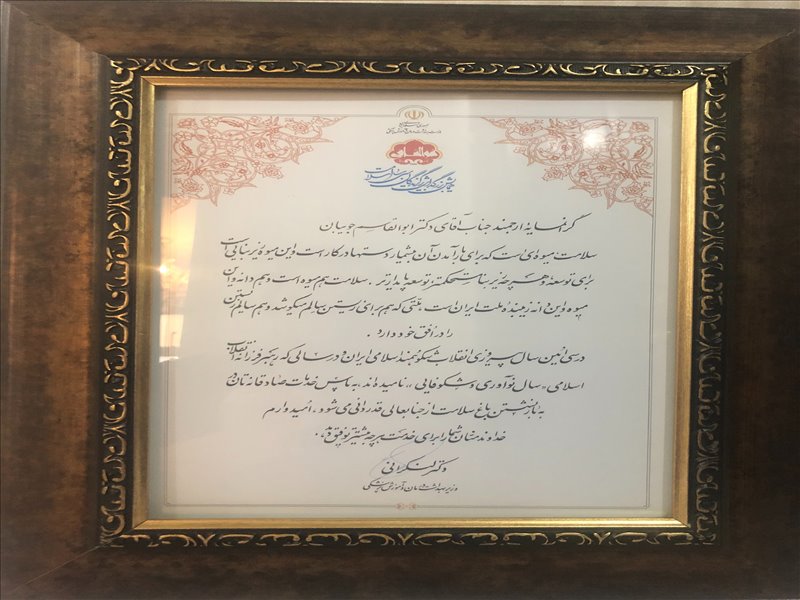 جمهوری اسلامی ایران
وزارت بهداشت، درمان و آموزش پزشکی
هوالشافی
گرانمایه ارجمند جناب آقای دکتر ابوالقاسم جویبان
سلامت میوه‌ای است که برای بار آمدن آن بیشمار دستها در کار است و این میوه زیربنایی است
برای توسعه و هر چه زیربنا مستحکمتر، توسعه پایدارتر. سلامت هم میوه است و هم دانه و این
میوه و این دانه زیبنده ملت ایران است، ملتی که هم برای زیستن سالم میکوشد و هم سالم زیستن
را در افق خود دارد.
در سی‌امین سال پیروزی انقلاب شکوهمند اسلامی ایران و در سالی که رهبر فرزانه انقلاب
اسلامی «سال نوآوری و شکوفایی» نامیده‌اند، به پاس خدمات صادقانه‌تان در
به بار نشستن باغ سلامت از جنابعالی قدردانی می‌شود، امیدوارم
خداوند منان شما را برای خدمت هر چه بیشتر توفیق دهد.
دکتر لنکرانی
وزیر بهداشت، درمان و آموزش پزشکی